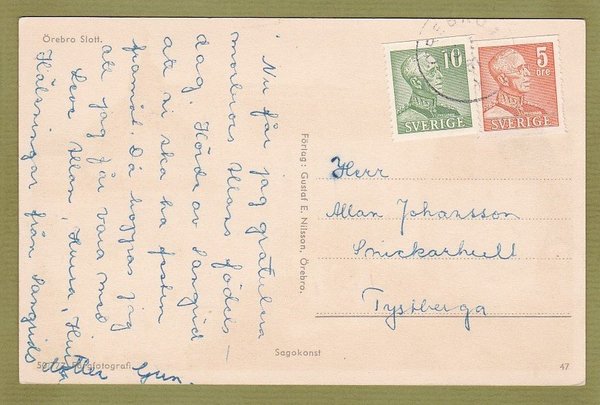 Örebro Slott.
Nu får jag gratulera
morbrors Allans födels-
dag. Hörde av Langrid
att ni ska ha festen
framöl. Då hoppas jag
att jag får vara med
Leve Allan, Hurra, Hur
Hälsningar från Langrids
Förlag: Gustaf E. Nilsson, Örebro.
10
SVERIGE
5
öre
SVERIGE
ÖREBRO
Herr
Allan Johansson
Snickarhult
Tystberga
fotografi
Sagokonst
47